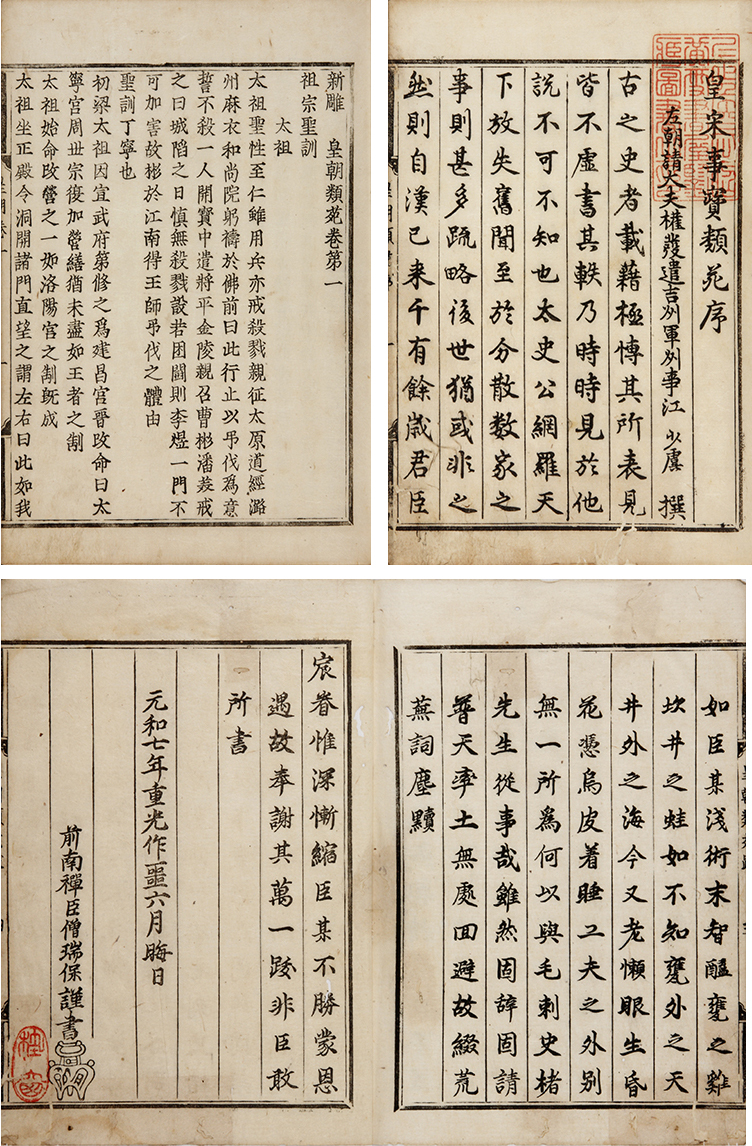 皇宋事寶類苑序
左朝請大夫權發遣吉州軍州事江少虞 撰
古之史者載藉極愽其所表見
皆不虛書其軼乃時時見於他
說不可不知也太史公網羅天
下放失舊聞至於分散数家之
事則甚多疏略後世猶或非之
然則自漢已来千有餘歳君臣
新雕 皇朝類苑卷第一
祖宗聖訓
太祖
太祖聖性至仁雖用兵亦戒殺戮親征太原道經潞
州麻衣和尚院躬禱於佛前曰此行止以弔伐爲意
誓不殺一人開寶中遣將平金陵親召曹彬潘美戒
之曰城陷之日慎無殺戮設若困鬬則李煜一門不
可加害故彬於江南得王師弔伐之體由
聖訓丁寧也
初梁太祖因宣武府第修之爲建昌宮晉改命曰大
寧宮周世宗復加營繕猶未盡如王者之制
太祖始命改營之一如洛陽宮之制既成
太祖坐正殿令洞開諸門直望之謂左右曰此如我
如臣某淺術末智醯甕之雞
坎井之蛙如不知甕外之天
井外之海今又老懶眼生昏
花憑烏皮着睡工夫之外別
無一所爲何以與毛刺史楮
先生從事哉雖然固辞固請
普天率土無處回避故綴荒
蕪詞塵黷
宸眷惟深慚縮臣某不勝蒙恩
遇故奉謝其萬一跋非臣敢
所書
元和七年重光作噩六月晦日
前南禪臣僧瑞保謹書